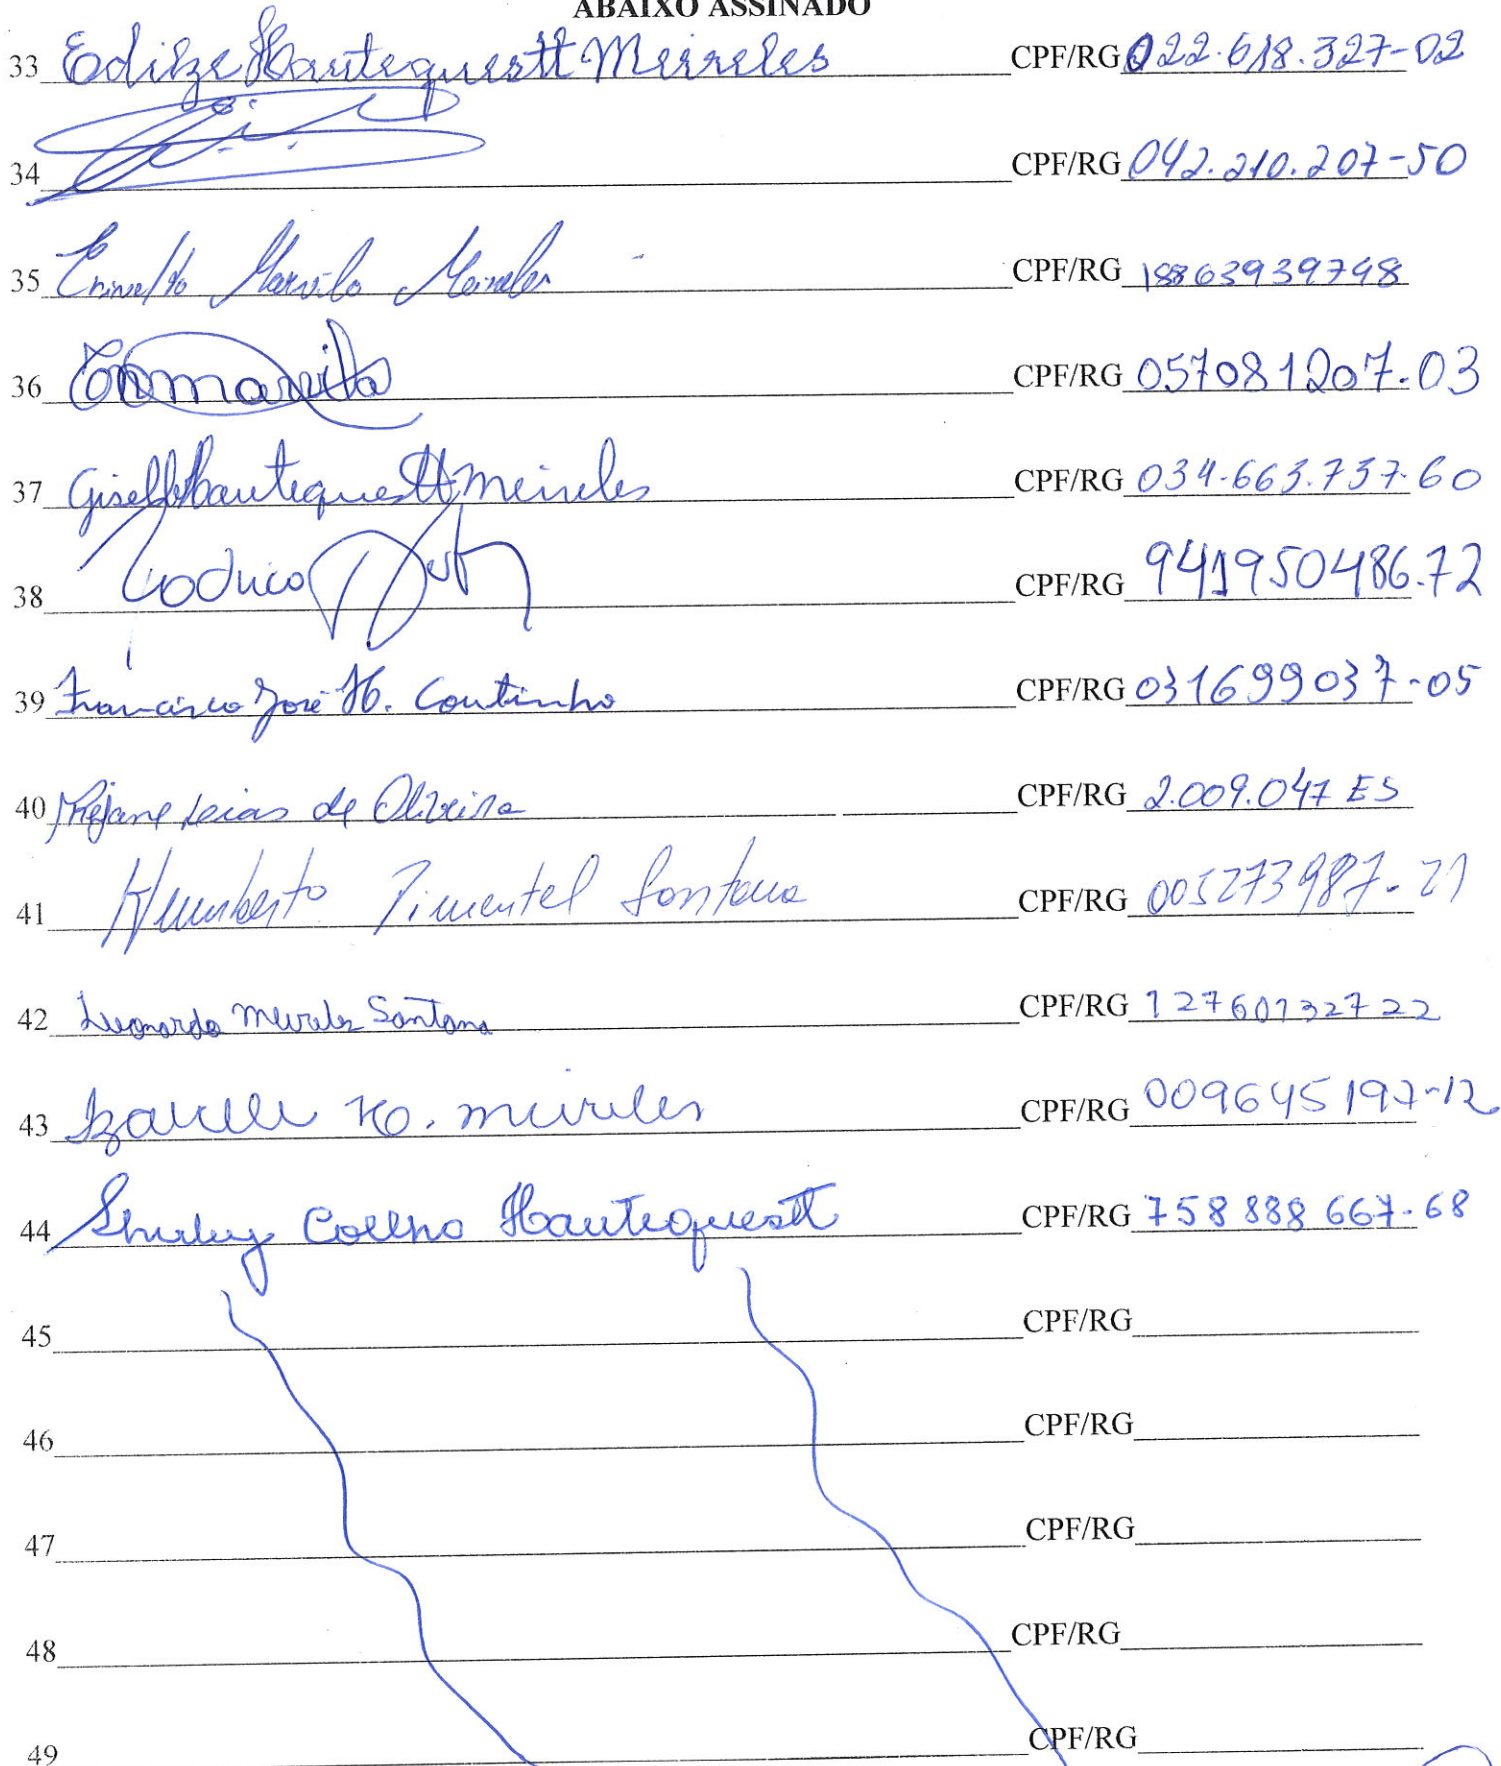 ABAIXO ASSINADO
33 Edilze Hautequestt Meireles CPF/RG 022.618.327-02
34 CPF/RG 042.210.207-50
35 Erivelto Marvila Meireles CPF/RG 18863939748
36 CPF/RG 057081207.03
37 Giselle Hautequestt Meireles CPF/RG 034.663.737.60
38 Rodrigo CPF/RG 941950486.72
39 Francisco José H. Coutinho CPF/RG 031699037-05
40 Rejane Leias de Oliveira CPF/RG 2.009.047 ES
41 Humberto Pimentel Santana CPF/RG 005273987-21
42 Leonardo Meireles Santana CPF/RG 12760132722
43 Izabelle H. Meireles CPF/RG 009645197-12
44 Shirley Coelho Hautequestt CPF/RG 758 888 667-68
45 CPF/RG
46 CPF/RG
47 CPF/RG
48 CPF/RG
49 CPF/RG